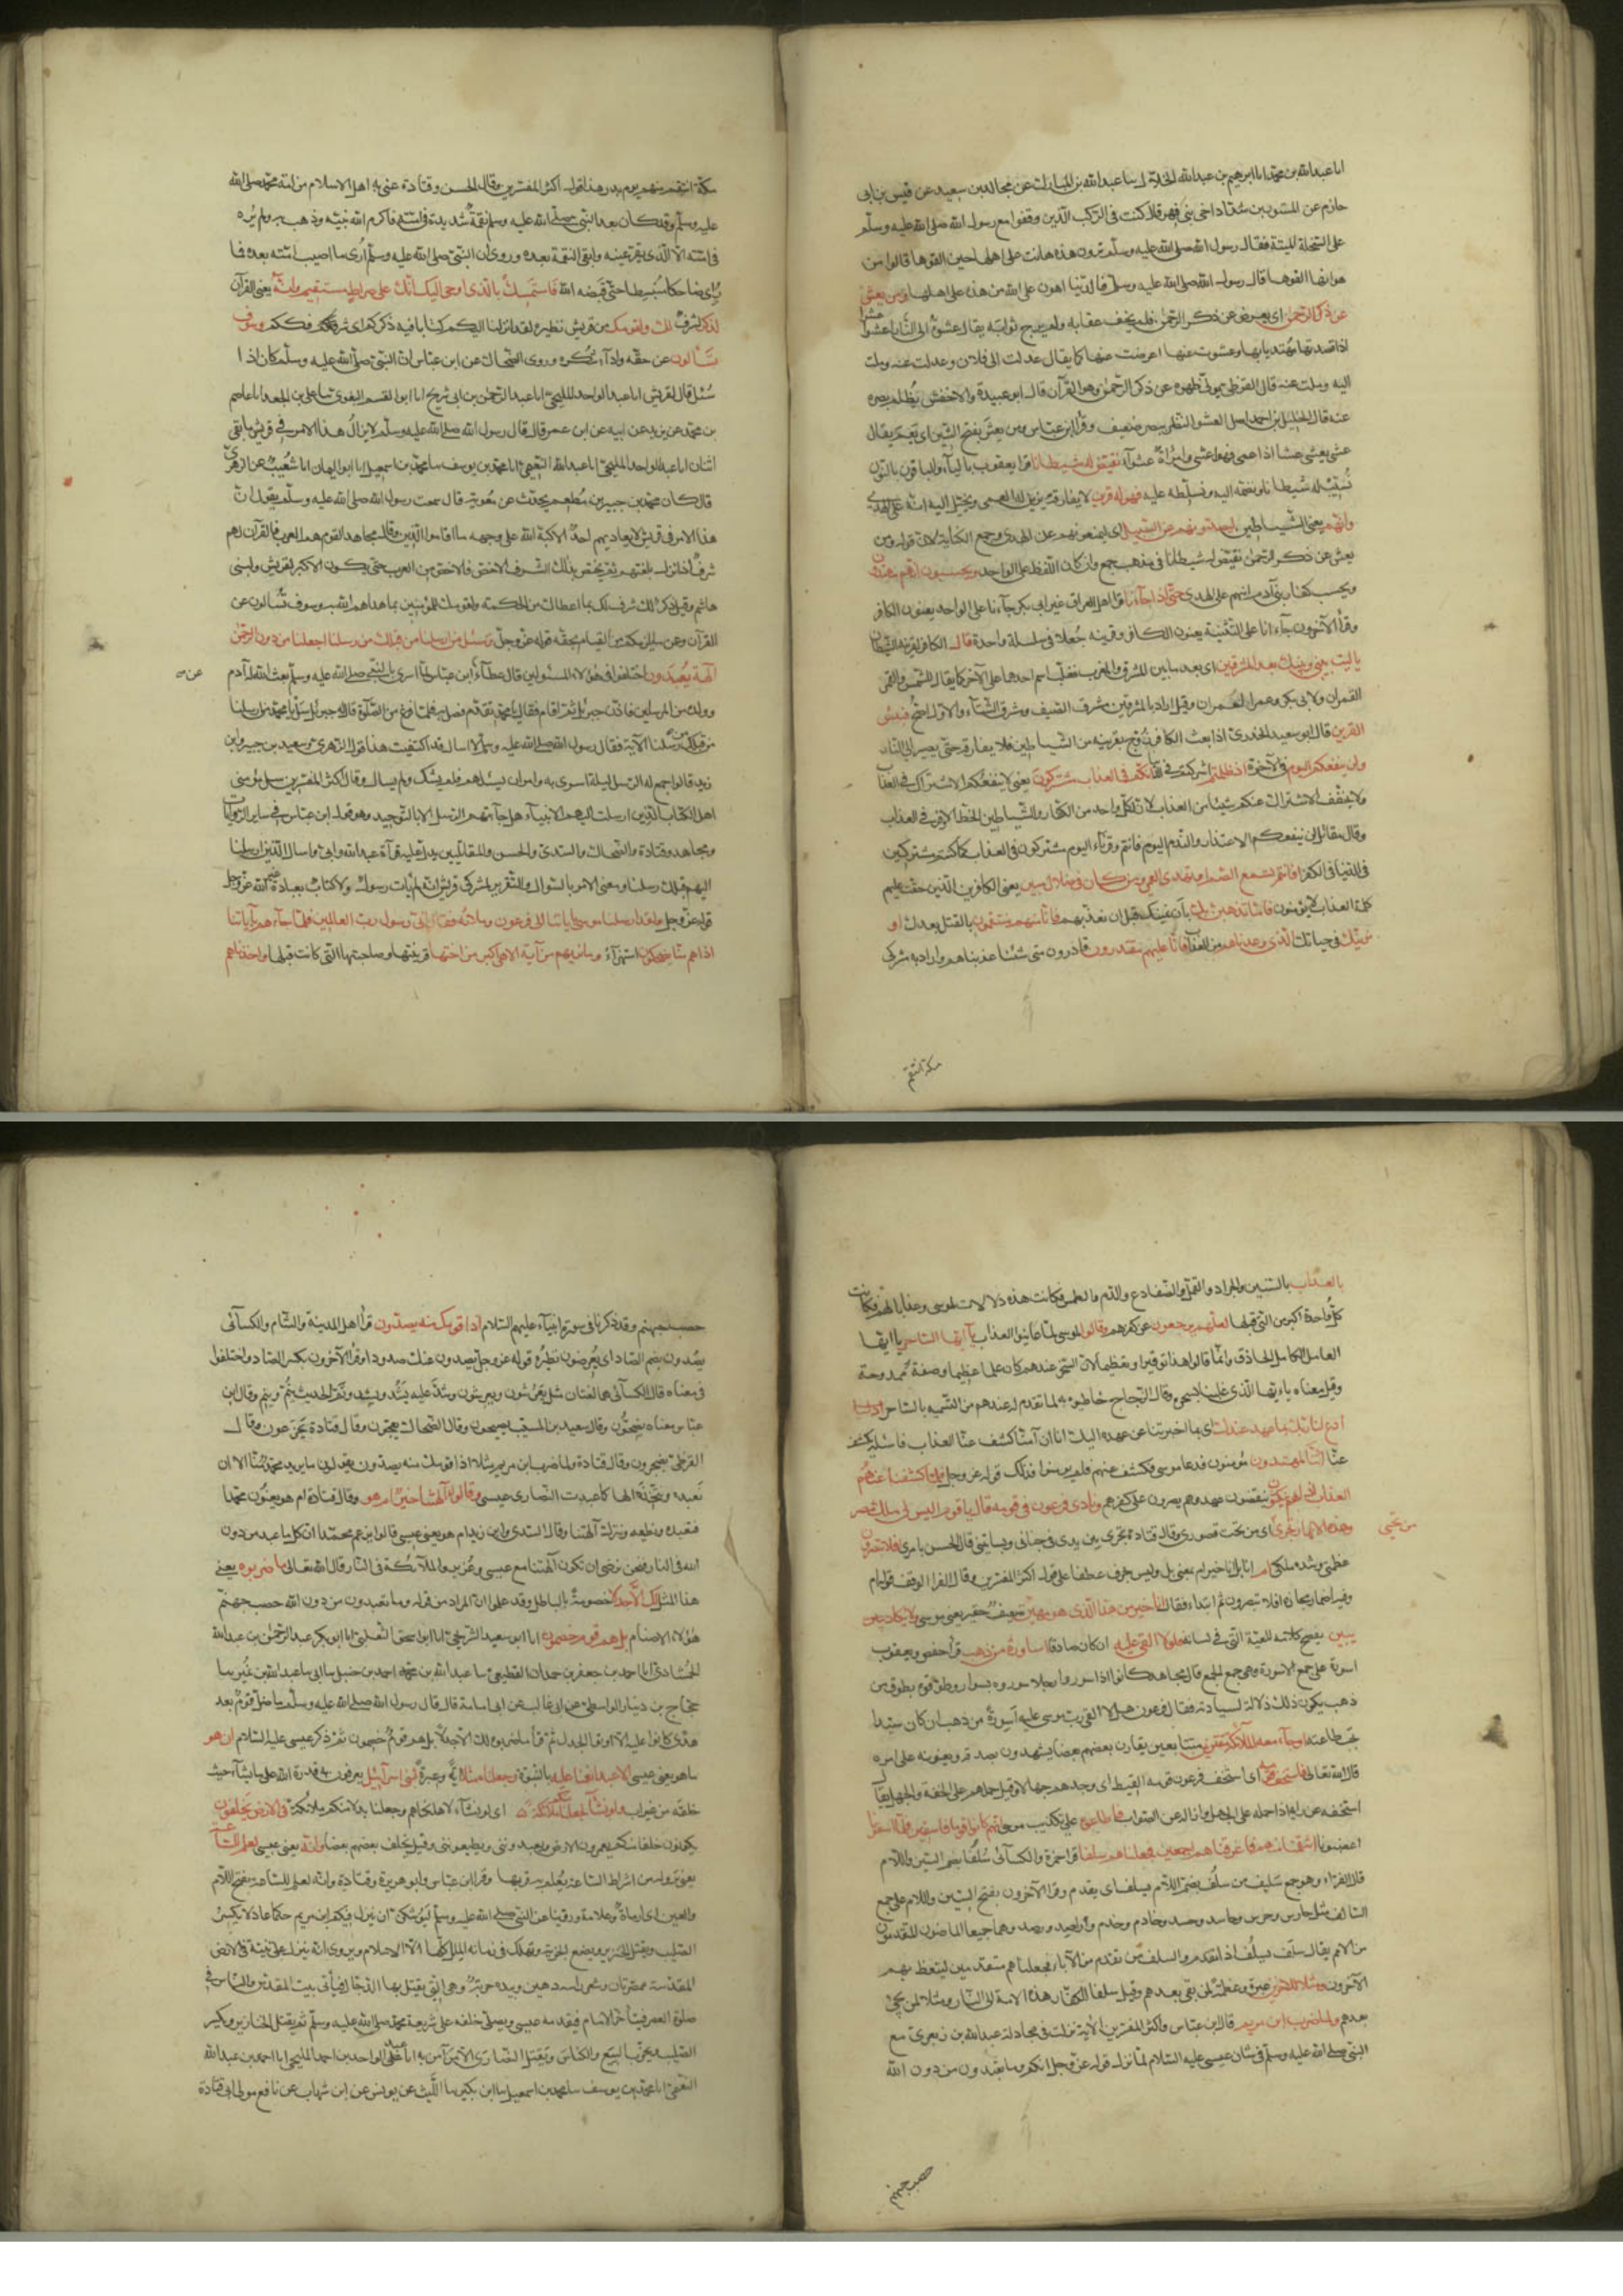 انا عبدالله بن محمد انا ابراهيم بن عبدالله الخلال سا عبدالله بن المبارك عن مجالد بن سعيد عن قيس بن ابى
حازم عن المستورد بن شداد اخى بنى فهر قال كنت فى الركب الذين وقفوا مع رسول الله صلى الله عليه وسلم
على السخلة الميتة فقال رسول الله صلى الله عليه وسلم ترون هذه هانت على اهلها حين القوها قالوا من
هوانها القوها قال رسول الله صلى الله عليه وسلم فالدنيا اهون على الله من هذه على اهلها ومن يعش
عن ذكر الرحمن اى يعرض عن ذكر الرحمن فلم يخف عقابه ولم يرج ثوابه يقال عشوت الى النار اعشوا عشوا
اذا قصدتها مهتديا بها وعشوت عنها اعرضت عنها كما يقال عدلت الى فلان وعدلت عنه وملت
اليه وملت عنه قال القرظى يولى ظهره عن ذكر الرحمن وهو القرآن قال ابو عبيدة والاخفش يظلم بصره
عنه قال الخليل بن احمد اصل العشو النظر ببصر ضعيف وقرا ابن عباس ومن يعش بفتح الشين اى يعم يقال
عشى يعشى عشا اذا عمى فهو اعشى وامرأة عشوآء نقيض له شيطانا قرا يعقوب بالياء والباقون بالنون
نسبب له شيطانا ونضمه اليه ونسلطه عليه فهو له قرين لا يفارقه يزين له العمى ويخيل اليه انه على الهدى
وانهم يعنى الشياطين ليصدونهم عن السبيل اى ليمنعونهم عن الهدى وجمع الكناية لان قوله ومن
يعش عن ذكر الرحمن نقيض له شيطانا فى مذهب جمع وان كان اللفظ على الواحد ويحسبون انهم مهتدون
ويحسب كفار بنى آدم انهم على الهدى حتى اذا جآءنا قرا اهل العراق غير ابى بكر جآءنا على الواحد يعنون الكافر
وقرأ الآخرون جآءانا على التثنية يعنون الكافر وقرينه جعلا فى سلسلة واحدة قال الكافر لقرينه الشيطان
يا ليت بينى وبينك بعد المشرقين اى بعد ما بين المشرق والمغرب فغلب اسم احدهما على الآخر كما يقال للشمس والقمر
القمران ولابى بكر وعمر العمران وقيل اراد بالمشرقين مشرق الصيف ومشرق الشتآء والاول اصح فبئس
القرين قال ابو سعيد الخدرى اذا بعث الكافر زوج بقرينه من الشياطين فلا يفارقه حتى يصير الى النار
ولن ينفعكم اليوم فى الآخرة اذ ظلمتم اشركتم فى الدنيا انكم فى العذاب مشتركون يعنى لا ينفعكم الاشتراك فى العذاب
ولا يخفف الاشتراك عنكم شيئا من العذاب لان لكل واحد من الكفار والشياطين الحظ الاوفر فى العذاب
وقال مقاتل لن ينفعكم الاعتذار والندم اليوم فانتم وقرناء اليوم مشتركون فى العذاب كما كنتم مشتركين
فى الدنيا فى الكفر افانت تسمع الصم او تهدى العمى ومن كان فى ضلال مبين يعنى الكافرين الذين حقت عليهم
كلمة العذاب لا يؤمنون فاما نذهبن بك بان نميتك قبل ان نعذبهم فانا منهم منتقمون بالقتل بعدك او
نرينك فى حياتك الذى وعدناهم من العذاب فانا عليهم مقتدرون قادرون متى شئنا عذبناهم واراد به مشركى
مكة انتقم
مكة انتقم منهم يوم بدر هذا قول اكثر المفسرين وقال الحسن وقتادة عنى به اهل الاسلام من امة محمد صلى الله
عليه وسلم وقد كان بعد النبى صلى الله عليه وسلم نقمة شديدة فى امته فاكرم الله نبيه وذهب به ولم يره
فى امته الا الذى يقر عينه وابقى النقمة بعده وروى ان النبى صلى الله عليه وسلم ارى ما اصيب امته بعده فما
رئى ضاحكا منبسطا حتى قبضه الله فاستمسك بالذى اوحى اليك انك على صراط مستقيم وانه يعنى القرآن
لذكر لشرف لك ولقومك من قريش نظيره لقد انزلنا اليكم كتابا فيه ذكركم اى شرفكم وسوف
تسألون عن حقه وادآء شكره وروى الضحاك عن ابن عباس ان النبى صلى الله عليه وسلم كان اذا
سئل قال لقريش انا عبد الواحد المليحى انا عبد الرحمن بن ابى شريح انا ابو القسم البغوى سا على بن الجعد انا عاصم
بن محمد عن زيد عن ابيه عن ابن عمر قال قال رسول الله صلى الله عليه وسلم لا يزال هذا الامر فى قريش ما بقى
اثنان انا عبد الواحد المليحى انا عبدالله النعيمى انا محمد بن يوسف سا محمد بن اسمعيل انا ابو اليمان انا شعيب عن الزهرى
قال كان محمد بن جبير بن مطعم يحدث عن معوية قال سمعت رسول الله صلى الله عليه وسلم يقول ان
هذا الامر فى قريش لا يعاديهم احد الا كبه الله على وجهه ما اقاموا الدين وقال مجاهد القوم هم العرب فالقرآن لهم
شرف اذ انزل بلغتهم ثم يختص بذلك الشرف الاخص فالاخص من العرب حتى يكون الاكبر لقريش ولبنى
هاشم وقيل ذكر لك شرف لك بما اعطاك من الحكمة ولقومك المؤمنين بما هداهم الله به وسوف تسألون عن
القرآن وعن ما يلزمكم من القيام بحقه قوله عز وجل وسئل من ارسلنا من قبلك من رسلنا اجعلنا من دون الرحمن
آلهة يعبدون اختلفوا فى هؤلاء المسئولين قال عطآء عن ابن عباس لما اسرى بالنبى صلى الله عليه وسلم بعث الله له آدم
وولده من المرسلين فاذن جبريل ثم اقام فقال يا محمد تقدم فصل بهم فلما فرغ من الصلوة قال له جبريل سل يا محمد من ارسلنا
من قبلك من رسلنا الآية فقال رسول الله صلى الله عليه وسلم لا اسال قد اكتفيت هذا قول الزهرى وسعيد بن جبير وابن
زيد قالوا جمع له الرسل ليلة اسرى به وامر ان يسئلهم فلم يشك ولم يسال وقال اكثر المفسرين سل مؤمنى
اهل الكتاب الذين ارسلت اليهم الانبياء هل جآءتهم الرسل الا بالتوحيد وهو قول ابن عباس فى ساير الروايات
ومجاهد وقتادة والضحاك والسدى والحسن والمقاتلين يدل عليه قرآءة عبدالله وابى واسال الذين ارسلنا
اليهم قبلك رسلنا ومعنى الامر بالسوال والتقرير لمشركى قريش انه لم يأت رسول ولا كتاب بعبادة غير الله عز وجل
قوله عز وجل ولقد ارسلنا موسى بآياتنا الى فرعون وملائه فقال انى رسول رب العالمين فلما جآءهم بآياتنا
اذا هم منها يضحكون استهزآء وما نريهم من آية الا هى اكبر من اختها قرينتها وصاحبتها التى كانت قبلها واخذناهم
بالعذاب بالسنين والجراد والقمل والضفادع والدم والطمس فكانت هذه دلالات لموسى وعذابا لهم فكانت
كل واحدة اكبر من التى قبلها لعلهم يرجعون عن كفرهم وقالوا لموسى لما عاينوا العذاب يا ايها الساحر يا ايها
العالم الكامل الحاذق وانما قالوا هذا توقيرا وتعظيما لان السحر عندهم كان علما عظيما وصفة ممدوحة
وقيل معناه يا ايها الذى غلبنا بسحره وقال الزجاج خاطبوه به لما تقدم له عندهم من التسمية بالساحر ادع لنا
ادع لنا ربك بما عهد عندك اى بما اخبرتنا عن عهده اليك انا ان آمنا كشف عنا العذاب فاسئله يكشف
عنا اننا لمهتدون مؤمنون فدعا موسى فكشف عنهم فلم يؤمنوا فذلك قوله عز وجل فلما كشفنا عنهم
العذاب اذا هم ينكثون ينقضون عهدهم ويصرون على كفرهم ونادى فرعون فى قومه قال يا قوم اليس لى ملك مصر
وهذه الانهار تجرى من تحتى اى من تحت قصورى وقال قتادة تجرى بين يدى فى جنانى وبساتينى قال الحسن بامرى افلا تبصرون
عظمتى وشدة ملكى ام انا بل انا خير ام بمعنى بل وليس بحرف عطف على قول اكثر المفسرين وقال الفرا الوقف قوله ام
وفيه اضمار مجازه افلا تبصرون ثم ابتدأ فقال انا خير من هذا الذى هو مهين ضعيف حقير يعنى موسى ولا يكاد يبين
يبين يفصح كلامه للعية التى فى لسانه فلولا القى عليه ان كان صادقا اساورة من ذهب قرأ حفص ويعقوب
اسورة على جمع الاسورة وهى جمع الجمع قال مجاهد كانوا اذا سوروا رجلا سوروه بسوار وطوقوه بطوق من
ذهب يكون ذلك دلالة لسيادته فقال فرعون هلا القى رب موسى عليه اسورة من ذهب ان كان سيدا
تجب طاعته او جآء معه الملائكة مقترنين متتابعين يقارن بعضهم بعضا يشهدون بصدقه ويعينونه على امره
قال الله تعالى فاستخف قومه اى استخف فرعون قومه القبط اى وجدهم جهالا وقيل حملهم على الخفة والجهل يقال
استخفه عن رايه اذا حمله على الجهل وازاله عن الصواب فاطاعوه على تكذيب موسى انهم كانوا قوما فاسقين فلما آسفونا
اغضبونا انتقمنا منهم فاغرقناهم اجمعين فجعلناهم سلفا قرا حمزة والكسآئى سلفا بضم السين واللام
قال الفراء وهو جمع سليف من سلف بضم اللام يسلف اى يقدم وقرا الآخرون بفتح السين واللام على جمع
السالف مثل حارس وحرس وحاسد وحسد وخادم وخدم وراصد ورصد وهما جميعا الماضون المقدمون
من الامم يقال سلف يسلف اذا تقدم والسلف من تقدم من الآباء فجعلناهم متقدمين ليتعظ بهم
الآخرون ومثلا للآخرين عبرة وعظة لمن بقى بعدهم وقيل سلفا لكفار هذه الامة الى النار ومثلا لمن يجئ
بعدهم ولما ضرب ابن مريم قال ابن عباس واكثر المفسرين الآية نزلت فى مجادلة عبدالله بن زبعرى مع
النبى صلى الله عليه وسلم فى شان عيسى عليه السلام لما نزل قوله عز وجل انكم وما تعبدون من دون الله
حصب جهنم
حصب جهنم وقد ذكرنا فى سورة انبيآء عليهم السلام اذا قومك منه يصدون قرأ اهل المدينة والشام والكسآئى
يصدون بضم الصاد اى يعرضون نظيره قوله عز وجل يصدون عنك صدودا وقرأ الآخرون بكسر الصاد واختلفوا
فى معناه قال الكسآئى هما لغتان مثل يعرشون ويعرشون وشد عليه يشد ويشد ونم الحديث ينم وينم وقال ابن
عباس معناه يضجون وقال سعيد بن المسيب يصيحون وقال الضحاك يعجون وقال قتادة يجزعون وقال
القرظى يضجرون وقال قتادة ولما ضرب ابن مريم مثلا اذا قومك منه يصدون يقولون ما يريد محمد منا الا ان
نعبده ونتخذه الها كما عبدت النصارى عيسى وقالوا أآلهتنا خير ام هو وقال قتادة ام هو يعنون محمدا
فنعبده ونطيعه ونترك آلهتنا وقال السدى وابن زيد ام هو يعنى عيسى قالوا يزعم محمد ان كل ما عبد من دون
الله فى النار فنحن نرضى ان تكون آلهتنا مع عيسى وعزير والملآئكة فى النار قال الله تعالى ما ضربوه يعنى
هذا المثل لك الا جدلا خصومة بالباطل وقد علموا ان المراد من قوله وما تعبدون من دون الله حصب جهنم
هؤلاء الاصنام بل هم قوم خصمون انا ابو سعيد الشريحى انا ابو اسحق الثعلبى انا ابو بكر عبد الرحمن بن عبدالله
الحمشادى انا احمد بن جعفر بن حمدان القطيعى سا عبدالله بن محمد احمد بن حنبل سا ابى سا عبدالله بن نمير سا
حجاج بن دينار الواسطى عن ابى غالب عن ابى امامة قال قال رسول الله صلى الله عليه وسلم ما ضل قوم بعد
هدى كانوا عليه الا اوتوا الجدل ثم قرأ ما ضربوه لك الا جدلا بل هم قوم خصمون ثم ذكر عيسى عليه السلام ان هو
ما هو يعنى عيسى الا عبد انعمنا عليه بالنبوة وجعلناه مثلا آية وعبرة لبنى اسرآئيل يعرفون به قدرة الله على ما يشآء حيث
خلقه من غير اب ولو نشآء لجعلنا منكم ملآئكة اى لو نشآء لاهلكناكم وجعلنا بدلا منكم ملآئكة فى الارض يخلفون
يكونون خلفا منكم يعمرون الارض ويعبدوننى ويطيعوننى وقيل يخلف بعضهم بعضا وانه يعنى عيسى لعلم للساعة
يعنى نزوله من اشراط الساعة يعلم به قربها وقرا ابن عباس وابو هريرة وقتادة وانه لعلم للساعة بفتح اللام
والعين اى امارة وعلامة وروينا عن النبى صلى الله عليه وسلم ليوشكن ان ينزل فيكم ابن مريم حكما عادلا يكسر
الصليب ويقتل الخنزير ويضع الجزية وتهلك فى زمانه الملل كلها الا الاسلام ويروى انه ينزل على ثنية فى الارض
المقدسة ممصرتان وشعر راسه دهين وبيده حربة وهى التى يقتل بها الدجال فيأتى بيت المقدس والناس فى
صلوة العصر فيتأخر الامام فيقدمه عيسى ويصلى خلفه على شريعة محمد صلى الله عليه وسلم ثم يقتل الخنازير ويكسر
الصليب ويخرب البيع والكنائس ويقتل النصارى الا من آمن به انا عبد الواحد بن احمد المليحى انا احمد بن عبدالله
النعيمى انا محمد بن يوسف سا محمد بن اسمعيل سا ابن بكير سا الليث عن يونس عن ابن شهاب عن نافع مولى ابى قتادة